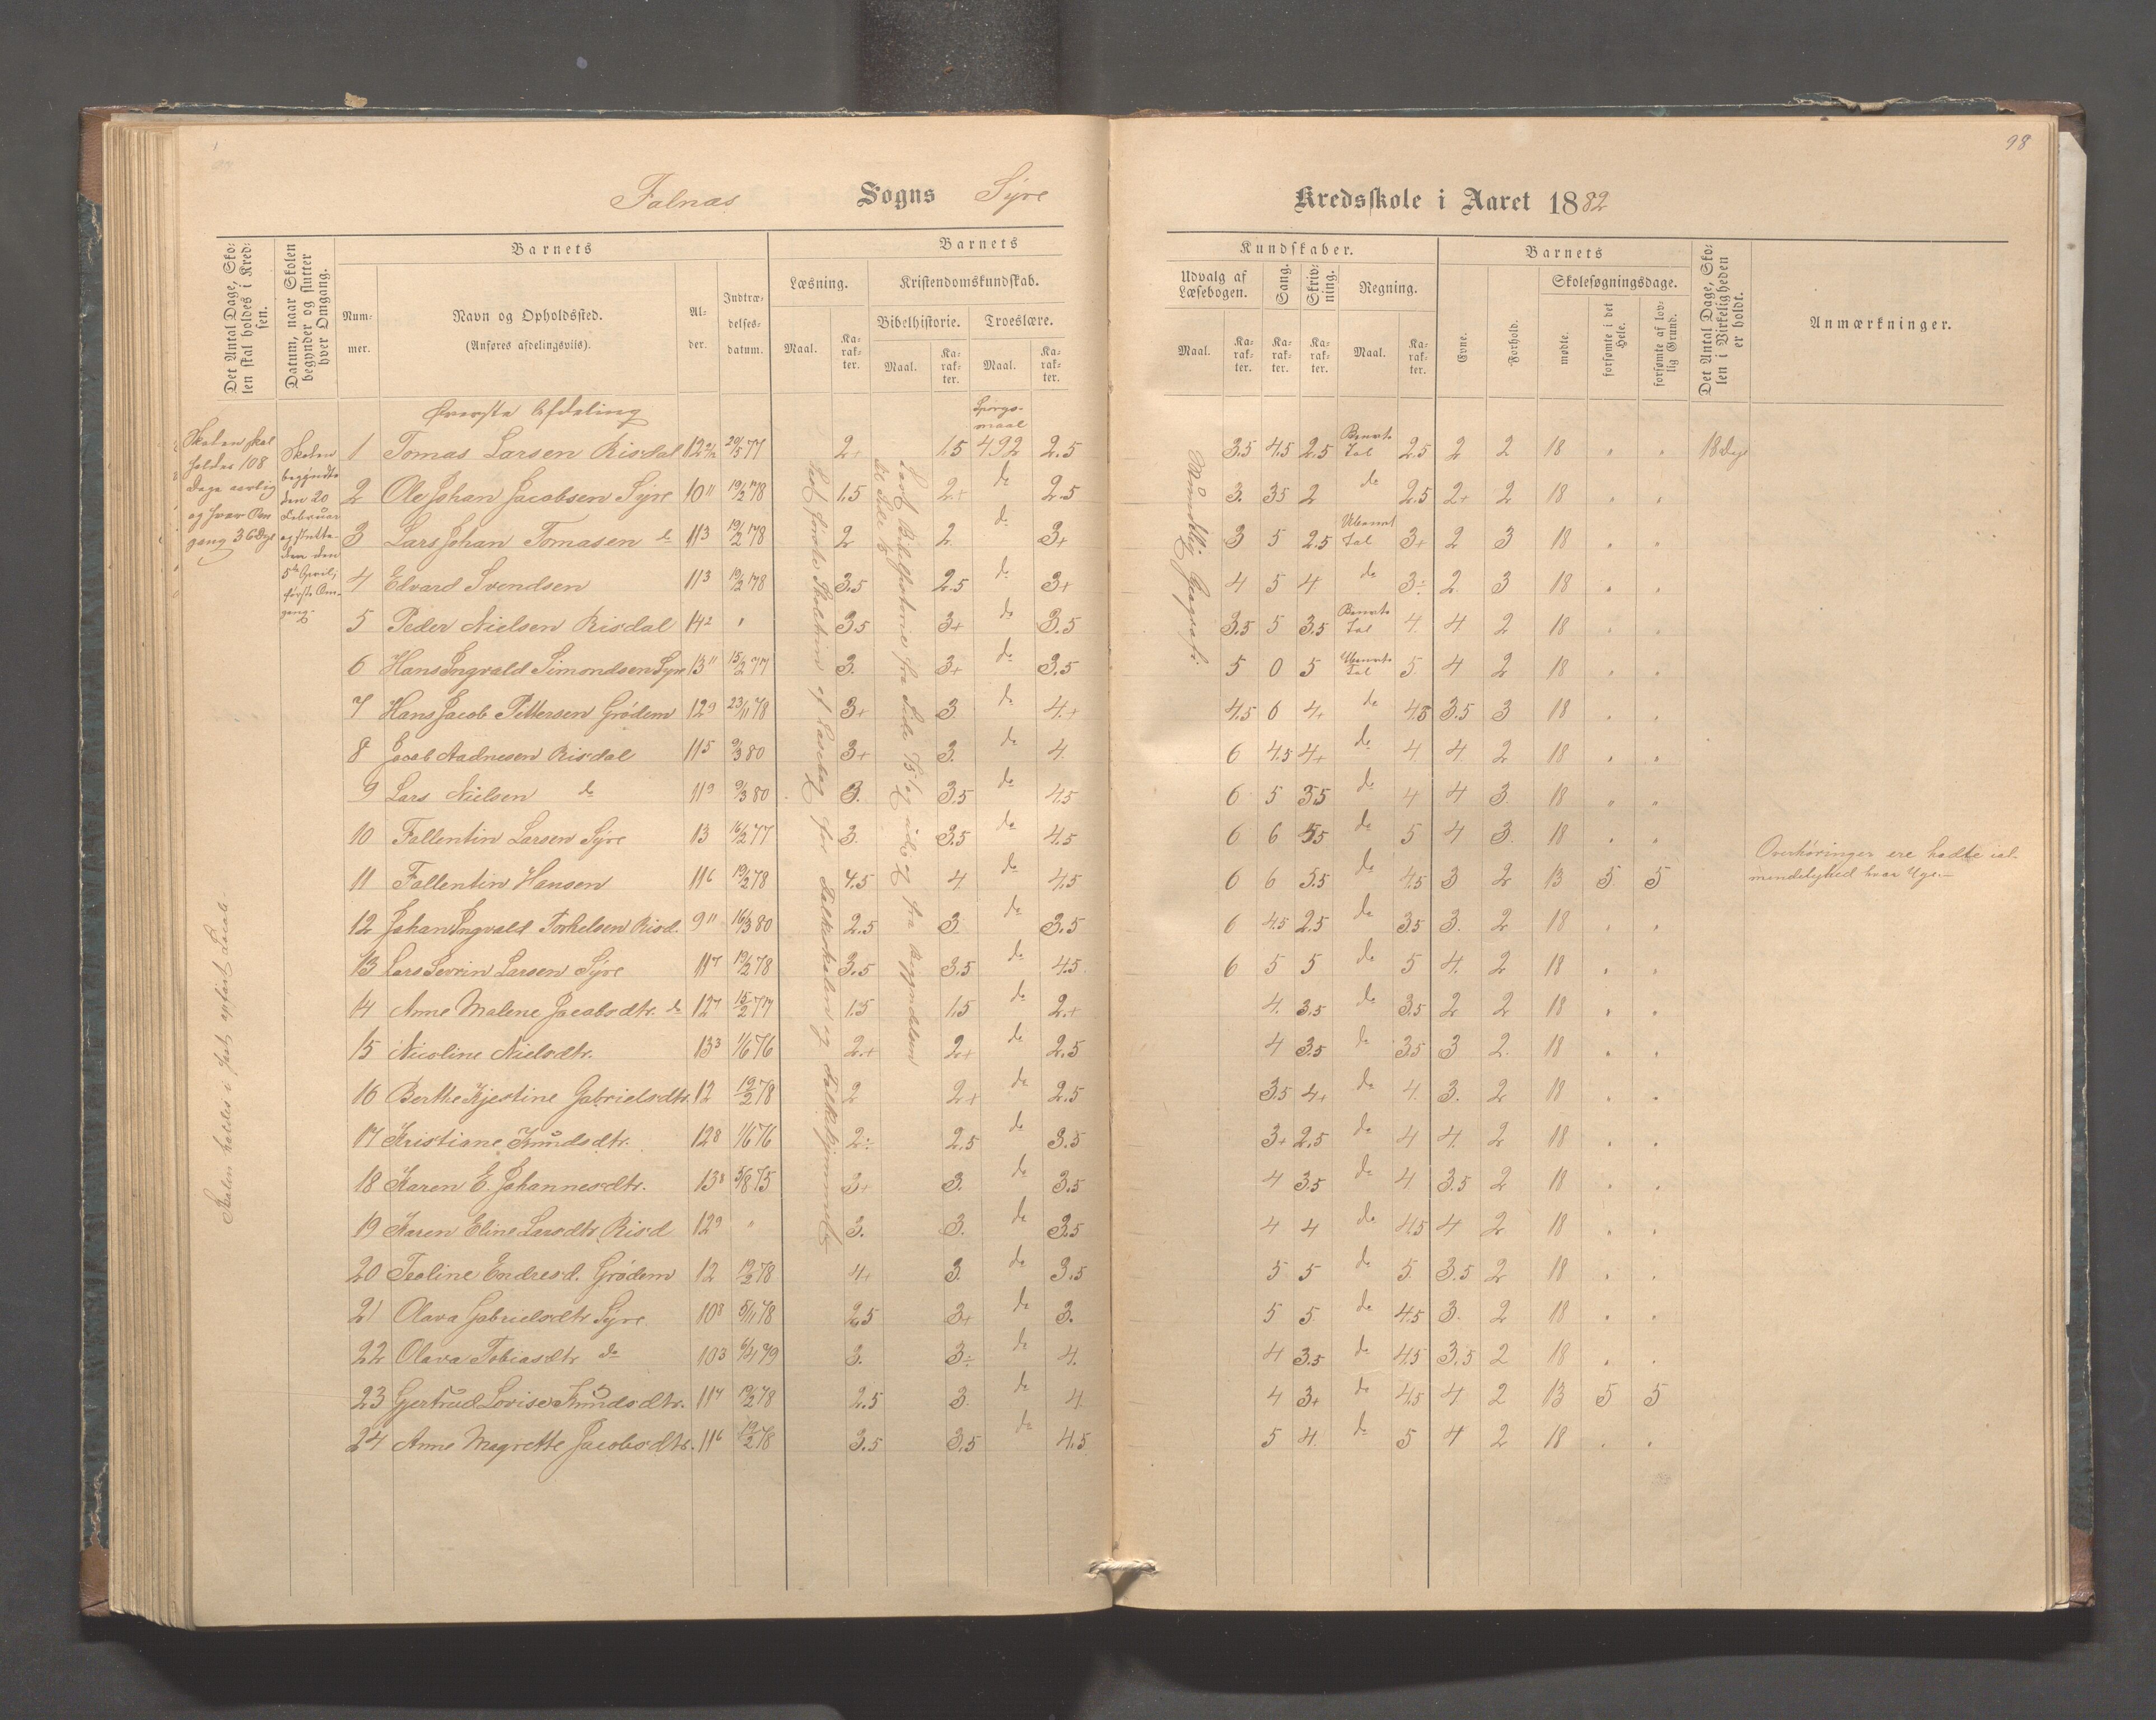 98
Falnæs Sogns Syre Kredsskole i Aaret 1882
Det Antal Dage, Sko-
len skal holdes i Kred-
sen.
Datum, naar Skolen
begynder og slutter
hver Omgang.
Barnets
Num-
mer.
Navn og Opholdssted.
(Anføres afdelingsvis).
Al-
der.
Indtræ-
delses-
datum.
Barnets
Læsning.
Kristendomskundskab.
Maal.
Ka-
rak-
ter.
Bibelhistorie.
Troeslære.
Maal.
Ka-
rak-
ter.
Maal.
Ka-
rak-
ter.
Kundskaber.
Udvalg af
Læsebogen.
Sang.
Skriv-
ning.
Regning.
Maal.
Ka-
rak-
ter.
Ka-
rak-
ter.
Ka-
rak-
ter.
Maal.
Ka-
rak-
ter.
Barnets
Evne.
Forhold.
Skolesøgningsdage.
mødte.
forsømte i det
Hele.
forsømte af lov-
lig Grund.
Det Antal Dage, Sko-
len i Virkeligheden
er holdt.
Anmærkninger.
Øverste Afdeling
Spørgs-
maal
Skolen skal
holdes 108
Dage aarlig
og hver Om
gang 36 Dge
Skolen
begyndte
den 20
Februar
og slutte-
den den
5te April,
første Om-
gang.
1 Tomas Larsen Risdal 12 2/12 20/5 77 2+ 1.5 492 2.5 3.5 4.5 2.5 Benævte Tal 2.5 2 2 18 " " 18 Dge
2 Ole Johan Jacobsen Syre 10 11 19/2 78 1.5 2+ do 2.5 3. 3.5 2 do 2.5 2+ 2 18 " "
3 Lars Johan Tomasen do 11 3 19/2 78 2 2 do 3+ 3 5 2.5 Ubenævt Tal 3+ 2 3 18 " "
4 Edvard Svendsen 11 3 19/2 78 3.5 2.5 do 3+ 4 5 4 do 3÷ 2 3 18 " "
5 Peder Nielsen Risdal 14 2 " 3.5 3+ do 3.5 3.5 5 3.5 Benævte Tal 4. 4 2 18 " "
6 Hans Ingvald Simondsen Syre 13 11 15/2 77 3. 3+ do 3.5 5 0 5 Ubenævte Tal 5. 4 2 18 " "
7 Hans Jacob Pettersen Grödem 12 9 23/11 78 3+ 3 do 4+ 4.5 6 4+ do 4.5 3.5 3 18 " "
8 Jacob Aadnesen Risdal 11 5 9/3 80 3+ 3. do 4. 6 4.5 4+ do 4 4. 2 18 " "
9 Lars Nielsen do 11 9 9/3 80 3. 3.5 do 4.5 6 5 3.5 do 4 4 3 18 " "
10 Fallentin Larsen Syre 13 16/2 77 3. 3.5 do 4.5 6 6 5.5 do 5 4 3. 18 " "
11 Fallentin Hansen 11 6 19/2 78 4.5 4 do 4.5 6 6 5.5 do 4.5 3 2 13 5 5
12 Johan Ingvald Torkelsen Risd. 9 11 16/3 80 2.5 3. do 3.5 6 4.5 2.5 do 3.5 3. 2 18 " "
13 Lars Sevrin Larsen Syre 11 7 19/2 78 3.5 3.5 do 4.5 6 5 5 do 5 4. 2 18 " "
14 Anne Malene Jacobsdtr. do 12 7 15/2 77 1.5 1.5 do 2+ 4. 3.5 do 3.5 2 2 18 " "
15 Nicoline Nielsdtr. 13 3 1/6 76 2+ 2+ do 2.5 4 3.5 do 3.5 3 2. 18 " "
16 Berthe Kjestine Gabrielsdtr. 12 19/2 78 2 2+ do 2.5 3.5 4+ do 4. 3. 2 18 " "
17 Kristiane Knudsdtr. 12 8 1/6 76 2÷ 2.5 do 3.5 3+ 2.5 do 4 4. 2 18 " "
18 Karen E. Johannesdtr. 13 8 5/8 75 3+ 3. do 3.5 4 3.5 do 4. 3.5 2 18 " "
19 Karen Eline Larsdtr. Risd 12 9 " 3. 3. do 3.5 4 4 do 4.5 4 2 18 " "
20 Teoline Endresd. Grödem 12 19/2 78 4+ 3. do 3.5 5 5 do 5. 3.5 2 18 " "
21 Olava Gabrielsdtr Syre 10 8 5/11 78 2.5 3+ do 3. 5 5. do 4.5 3. 2 18 " "
22 Olava Tobiasdtr do 10 3 6/4 79 3. 3÷ do 4. 4 3.5 do 4.5 3.5 2 18 " "
23 Gjertrud Lovise Knudsdtr. 11 7 19/2 78 2.5 3. do 4. 4 3+ do 4.5 4 2 13 5 5
24 Anne Magrette Jacobsdtr. 11 6 19/2 78 3.5 3.5 do 4.5 5 4. do 5 4 2 18 " "
af Læsebog for Folkeskolen og Folkehjemmet
Mundtlig Geografi.
Skolen holdes i fast Locale
Overhøringer ere
hver Uge.—